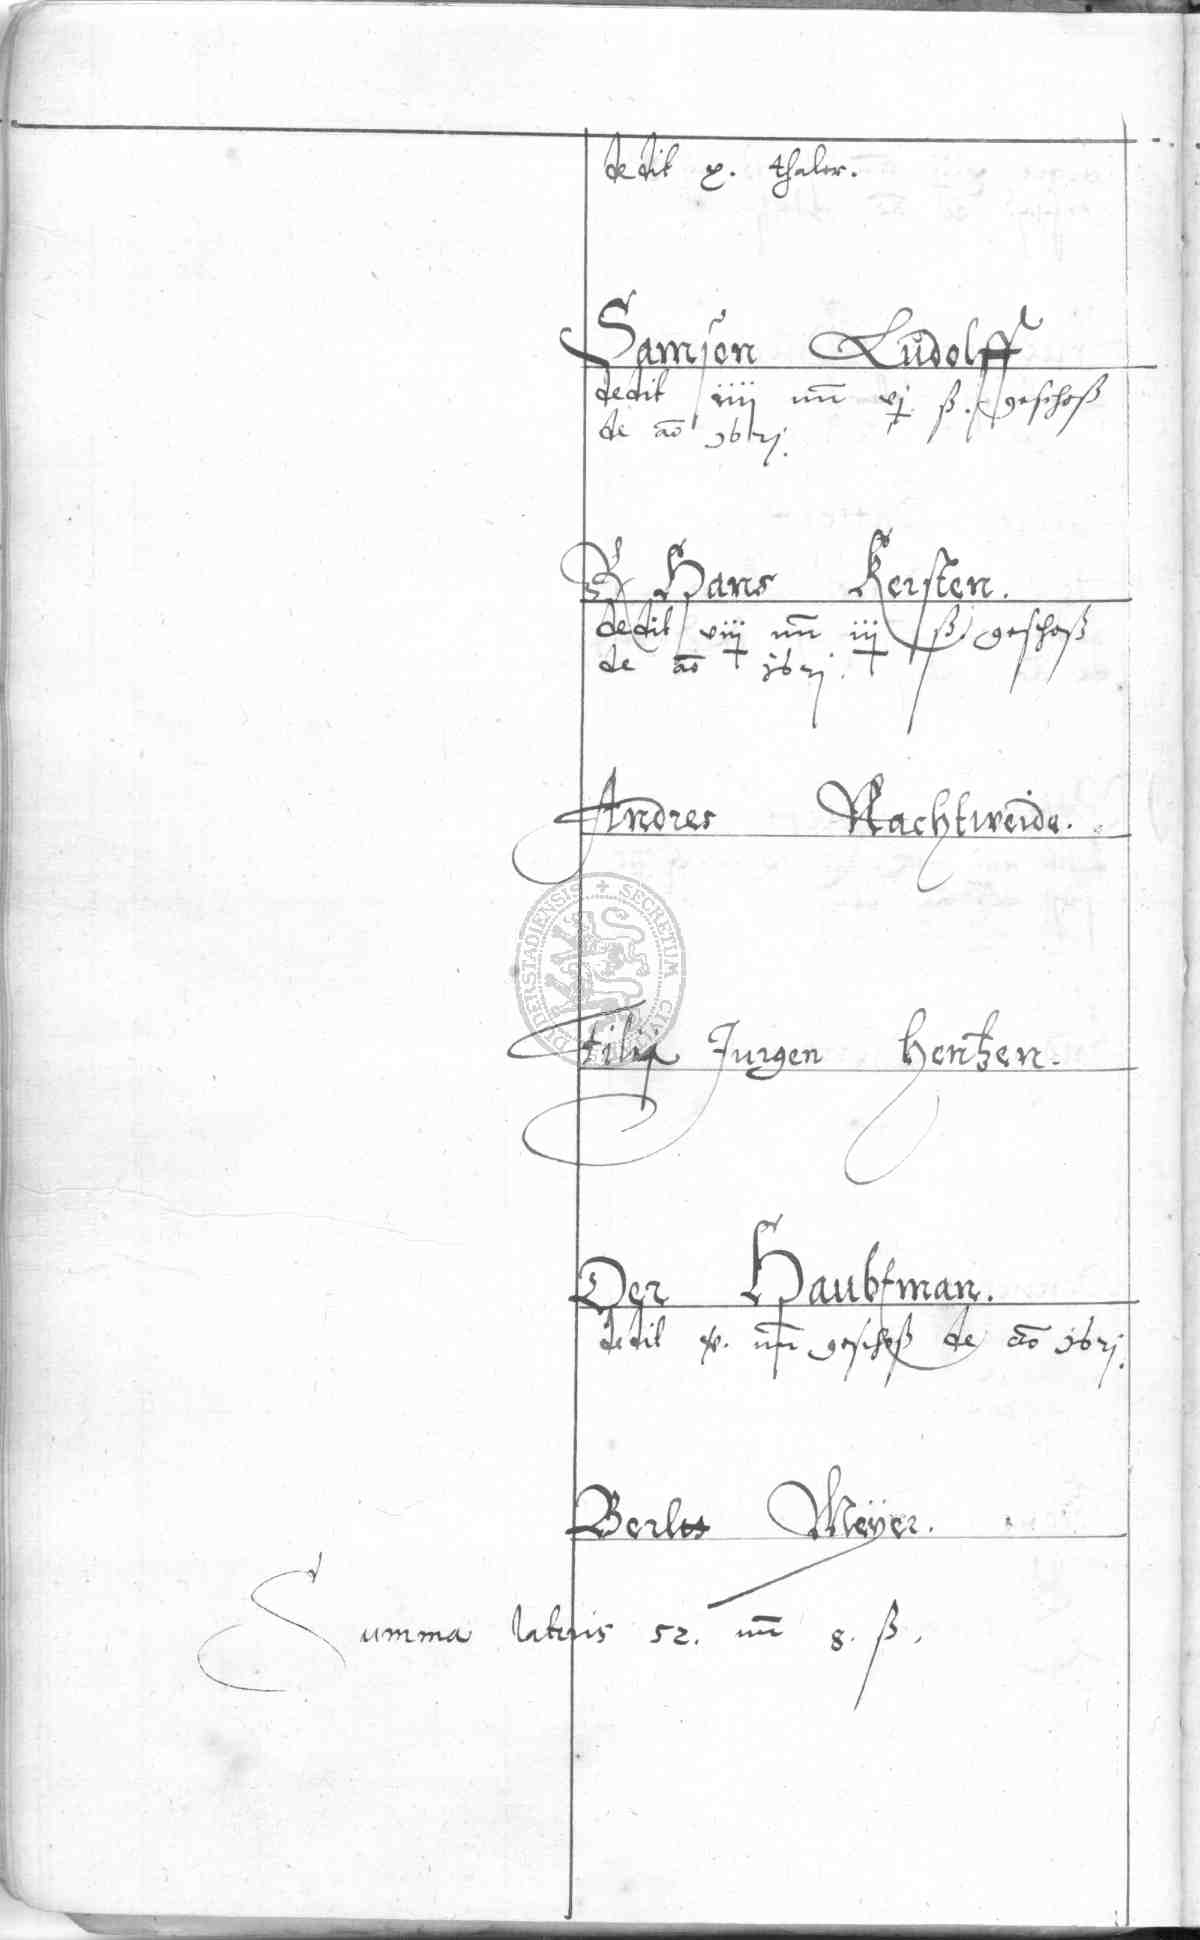 dedit x. thaler.
Samson Ludolff
dedit iiii mr vj ß. geschoß
de ao 1621.
Hans Kersten.
dedit viij mr iij ß. geschoß
de ao 1621.
Andres Nachtweide.
DUDERSTADIENSIS + SECRETUM CIVI
filij Jurgen Hentzen.
Der Haubtman.
dedit x. mr geschoß de ao 1621.
Berltt Meÿer.
Summa lateris 52. mr 8. ß.